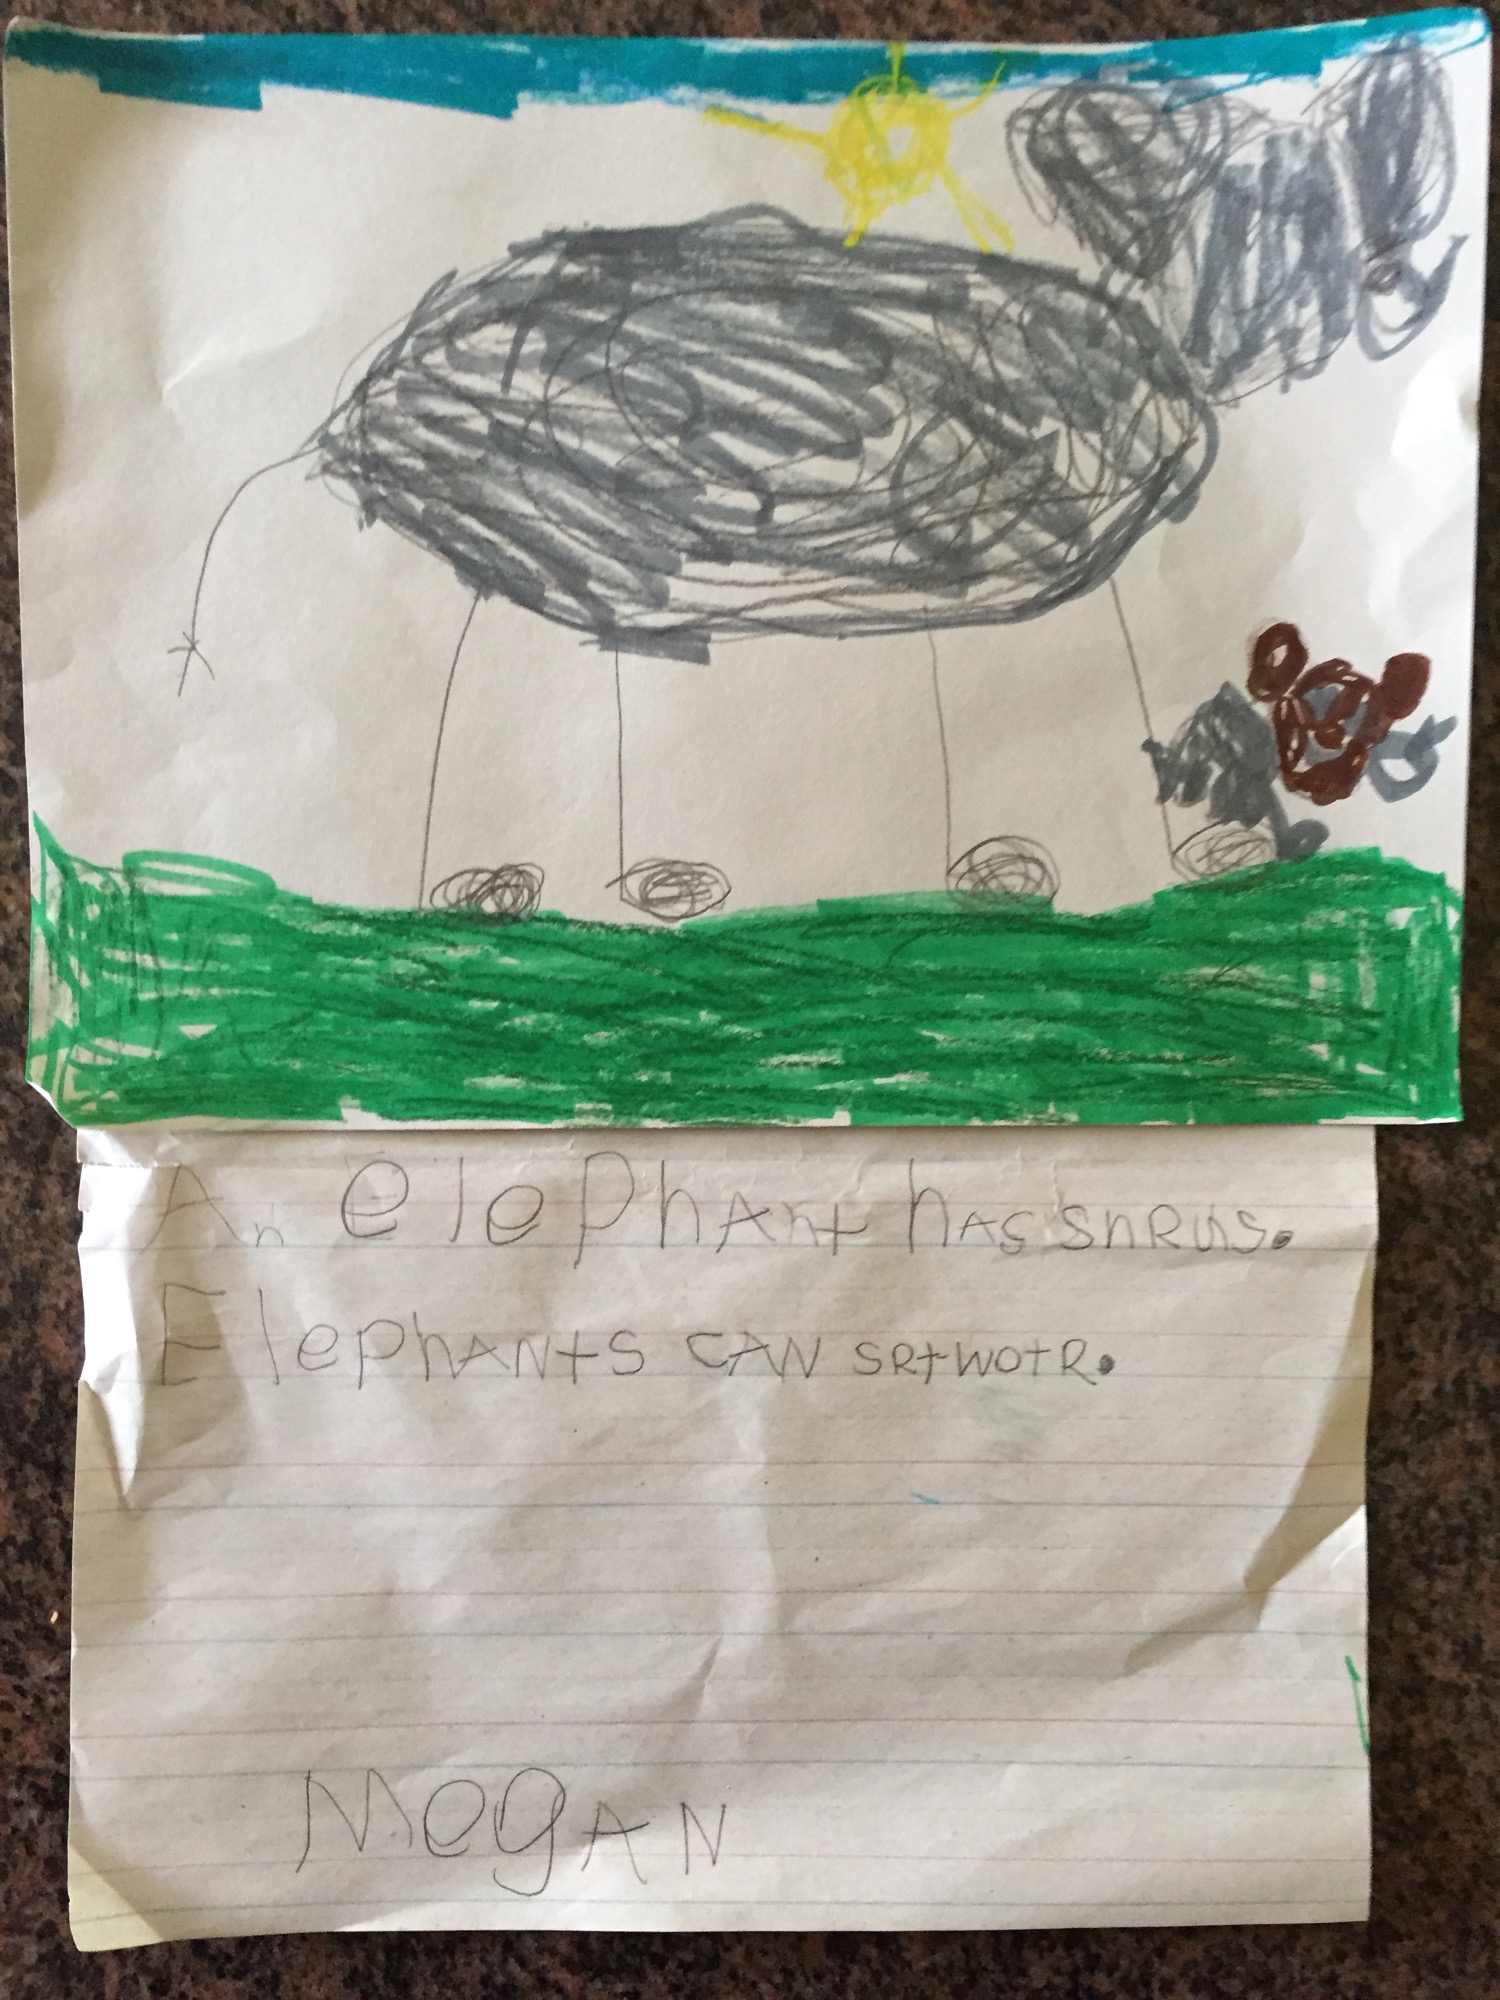 An elephAnt hAs snRus.
ElephANts CAN SRtWOtR.
MegAN